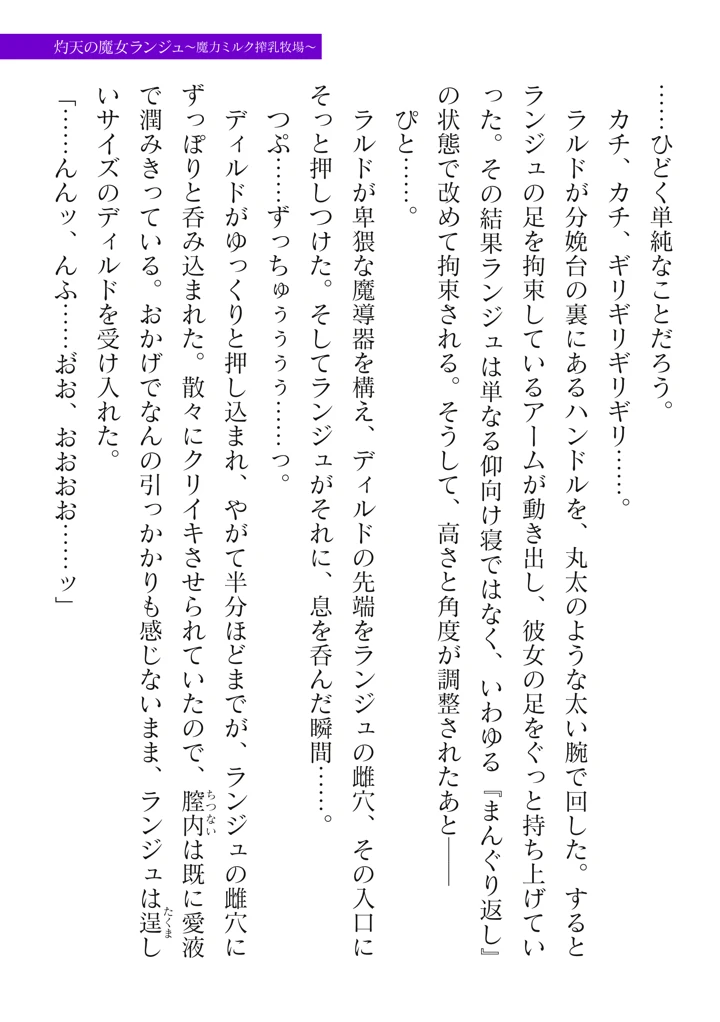 灼天の魔女ランジュ~魔力ミルク搾乳牧場~
……ひどく単純なことだろう。
カチ、カチ、ギリギリギリギリ……。
ラルドが分娩台の裏にあるハンドルを、丸太のような太い腕で回した。すると
ランジュの足を拘束しているアームが動き出し、彼女の足をぐっと持ち上げてい
った。その結果ランジュは単なる仰向け寝ではなく、いわゆる『まんぐり返し』
の状態で改めて拘束される。そうして、高さと角度が調整されたあと――
ぴと……。
ラルドが卑猥な魔導器を構え、ディルドの先端をランジュの雌穴、その入口に
そっと押しつけた。そしてランジュがそれに、息を呑んだ瞬間……。
つぷ……ずっちゅぅぅぅぅ……っ。
ディルドがゆっくりと押し込まれ、やがて半分ほどまでが、ランジュの雌穴に
ずっぽりと呑み込まれた。散々にクリイキさせられていたので、膣内ちつないは既に愛液
で潤みきっている。おかげでなんの引っかかりも感じないまま、ランジュは逞たくまし
いサイズのディルドを受け入れた。
「……んんッ、んふ……お゛お、おおおお……ッ」